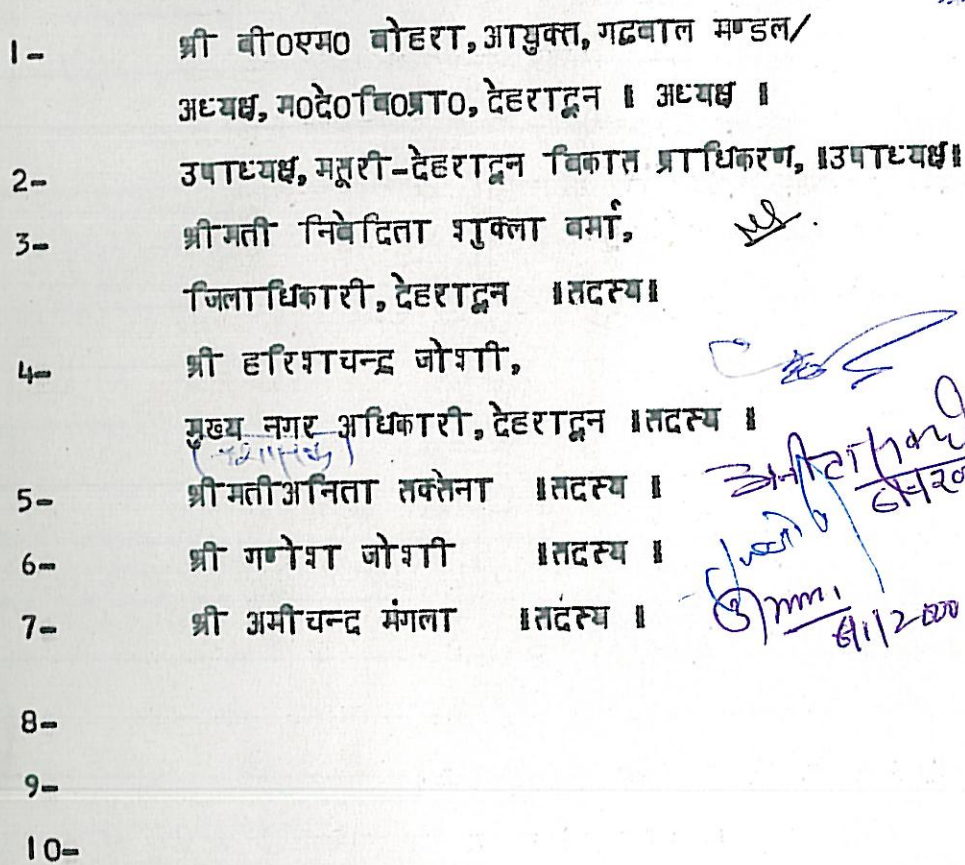 1- श्री बी0एम0 वोहरा, आयुक्त, गढवाल मण्डल/
अध्यक्ष, म0दे0वि0प्रा0, देहरादून ॥ अध्यक्ष ॥
2- उपाध्यक्ष, मसूरी-देहरादून विकास प्राधिकरण, ॥उपाध्यक्ष॥
3- श्रीमती निवेदिता शुक्ला वर्मा,
जिलाधिकारी, देहरादून ॥सदस्य॥
4- श्री हरिशचन्द्र जोशी,
मुख्य नगर अधिकारी, देहरादून ॥सदस्य ॥
5- श्रीमती अनिता सक्सेना ॥सदस्य ॥
6- श्री गणेश जोशी ॥सदस्य ॥
7- श्री अमीचन्द मंगला ॥सदस्य ॥
6/1/2000
8-
9-
10-